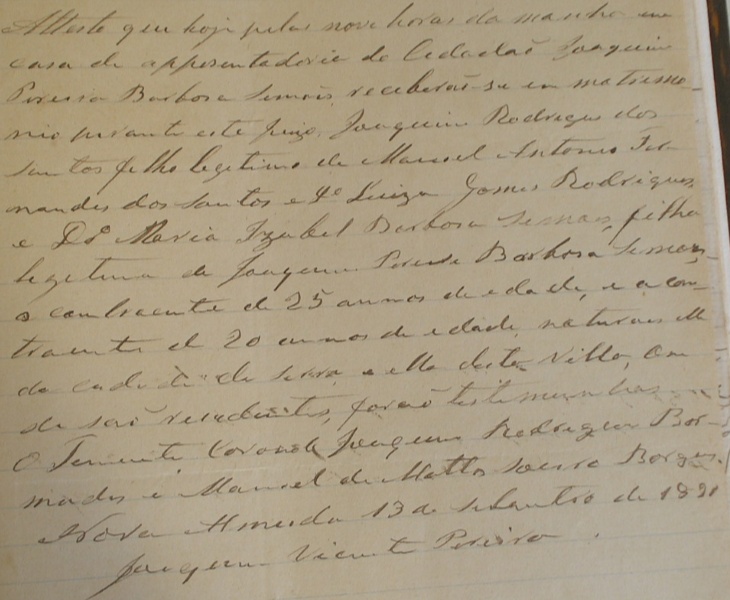 Attesto que hoje pelas nove horas da manhã em
casa de apposentadoria do Cidadaõ Joaquim
Pereira Barbosa Semões receberaõ-se em matrimo-
nio perante este Juizo, Joaquim Rodrigues dos
Santos filho legitimo de Manuel Antonio Fer-
nandes dos Santos e Dª Luiza Gomes Rodrigues,
e Dª Maria Izabel Barbosa Semões, filha
legitima de Joaquim Pereira Barbosa Semões,
o contraente de 25 annos de edade, e a con-
traente de 20 annos de edade, naturaes
da cidade da Serra, e ella desta Villa, on-
de saõ residentes, foraõ testimunhas
O Tenente Coronel Joaquim Rodrigues Ber-
mudes e Manuel de Mattos Borges.
Nova Almeida 13 de Setembro de 1891
Joaquim Vicente Pereira